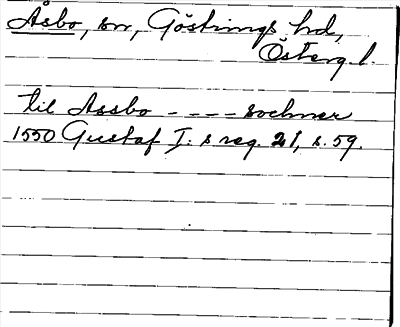 Åsbo, sn, Göstrings hd,
Österg. l.
til Assbo - - - - sochner
1550 Gustaf I: s reg. 21, s. 59.